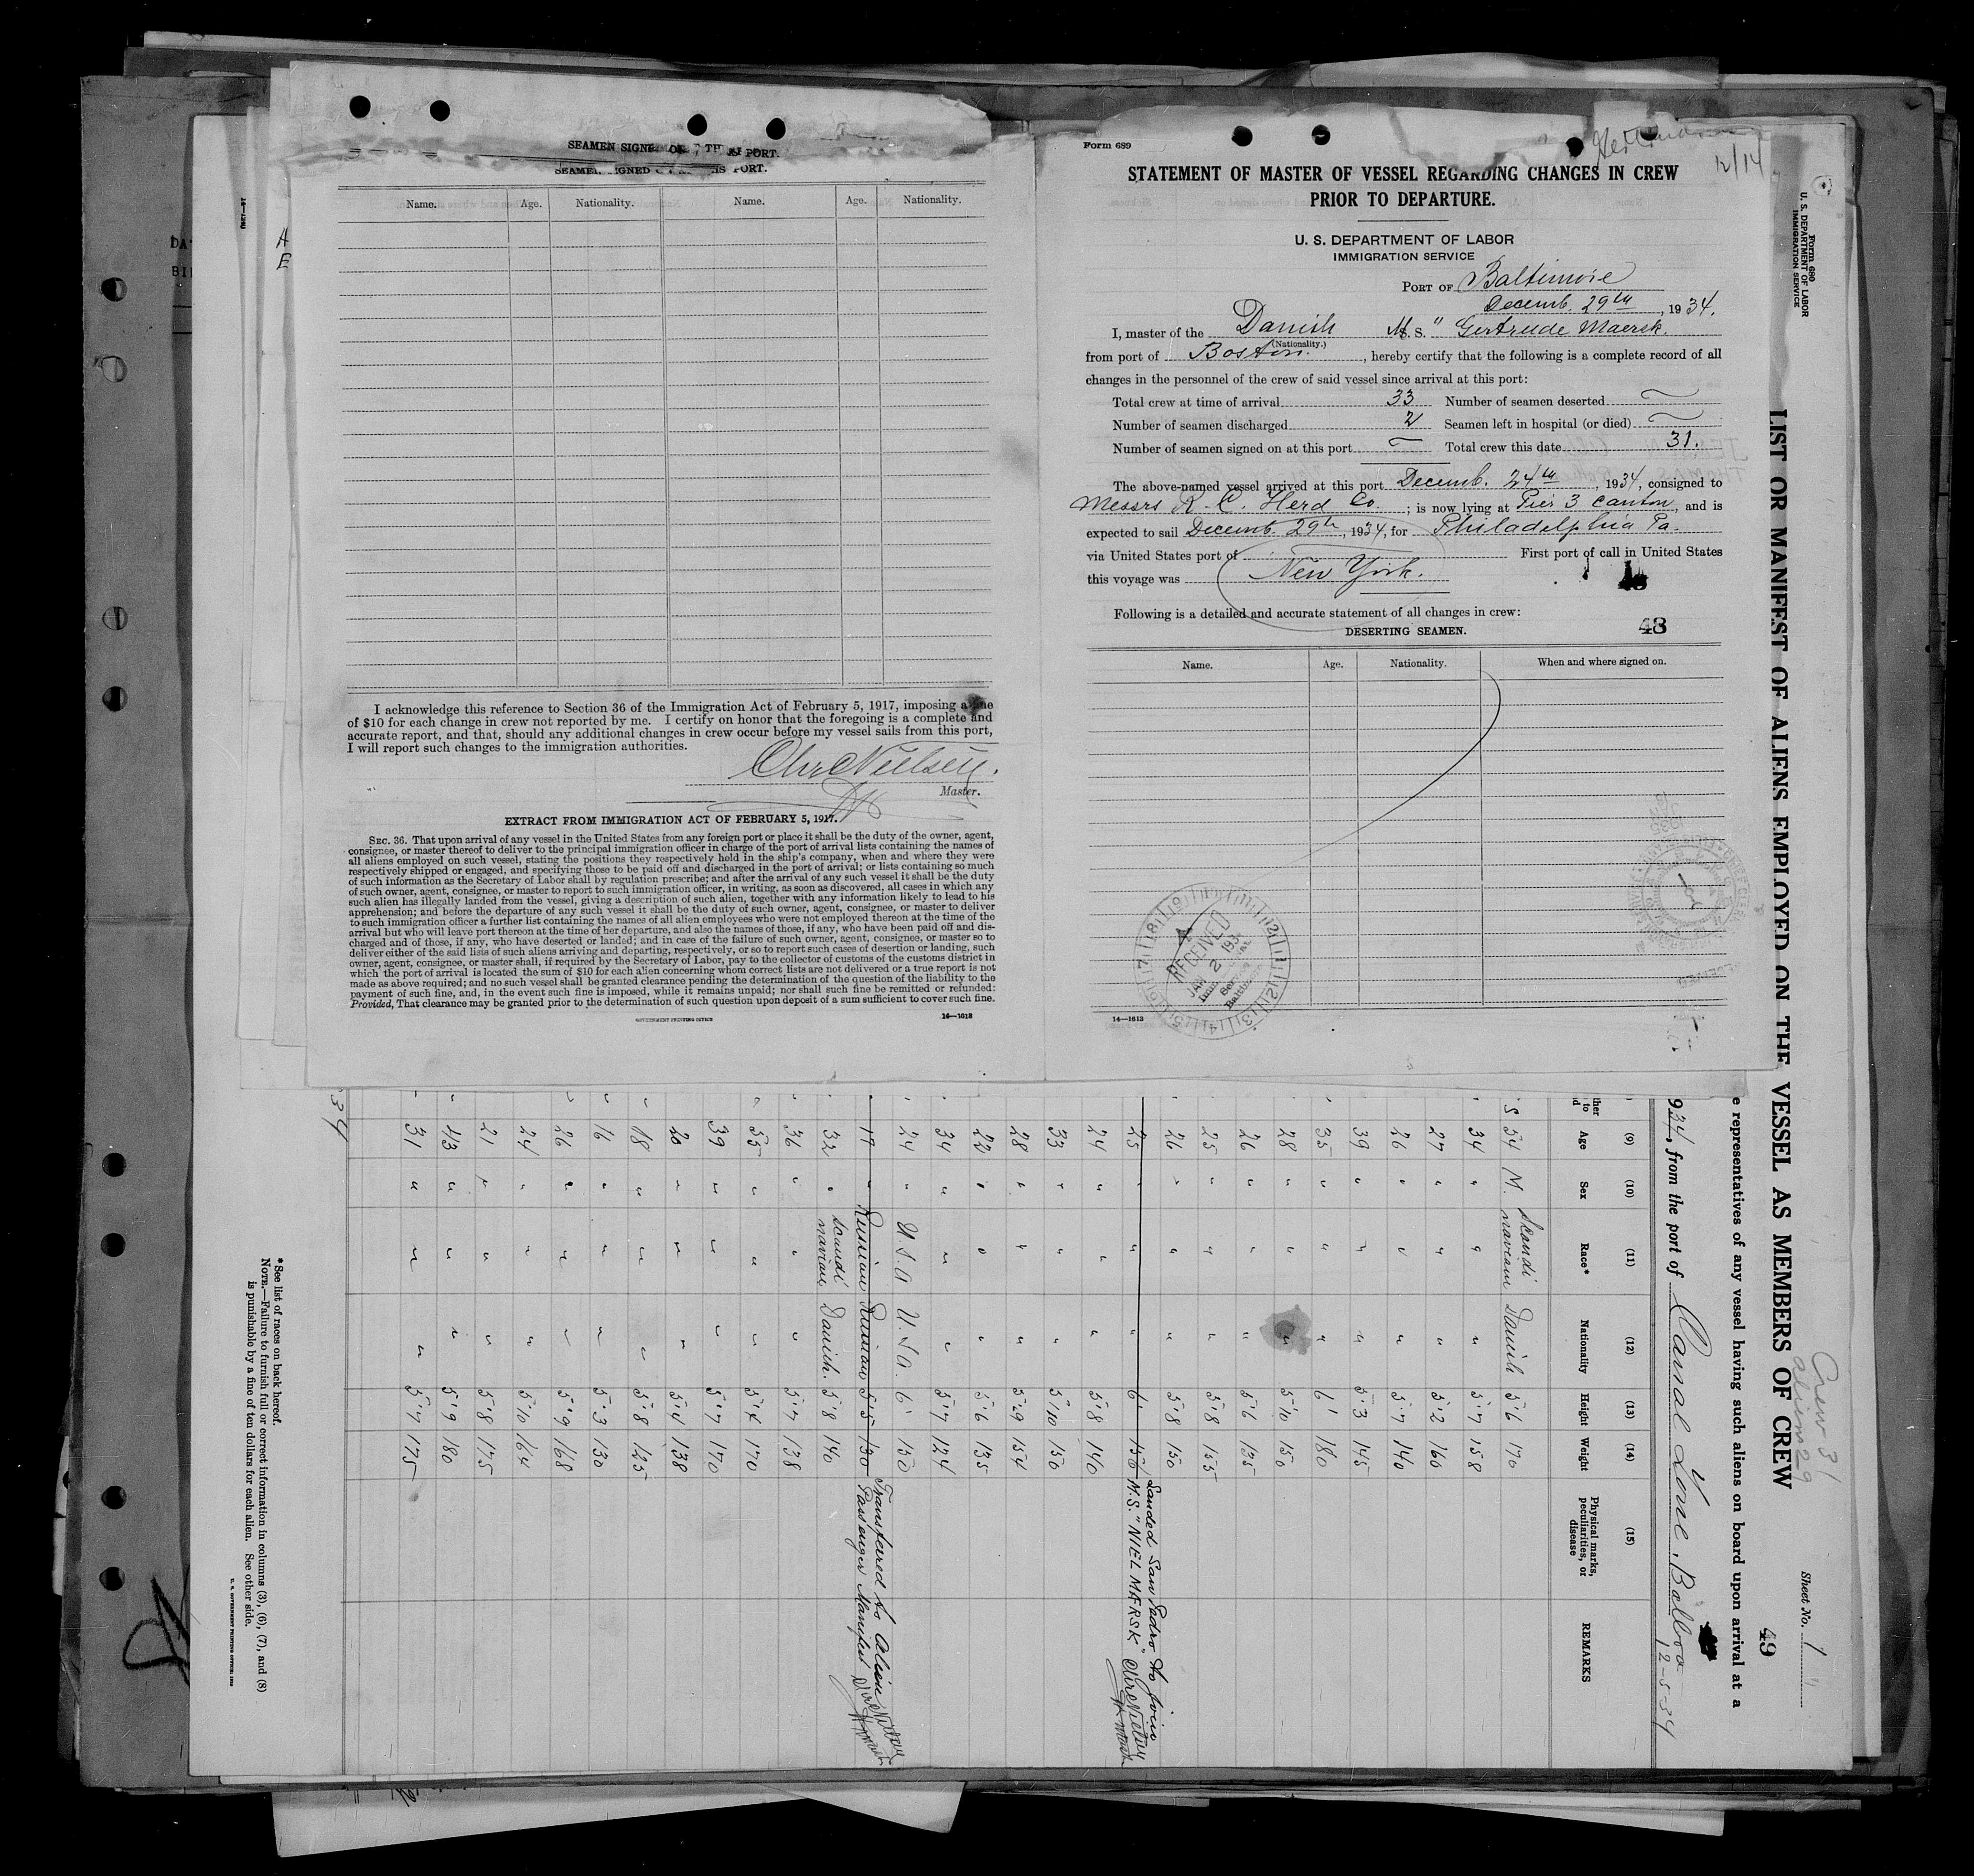 SEAMEN SIGNED ON THIS PORT.
Name. Age. Nationality. Name. Age. Nationality.
I acknowledge this reference to Section 36 of the Immigration Act of February 5, 1917, imposing a fine
of $10 for each change in crew not reported by me. I certify on honor that the foregoing is a complete and
accurate report, and that, should any additional changes in crew occur before my vessel sails from this port,
I will report such changes to the immigration authorities.
Chr Nielsen.
Master.
EXTRACT FROM IMMIGRATION ACT OF FEBRUARY 5, 1917.
SEC. 36. That upon arrival of any vessel in the United States from any foreign port or place it shall be the duty of the owner, agent,
consignee, or master thereof to deliver to the principal immigration officer in charge of the port of arrival lists containing the names of
all aliens employed on such vessel, stating the positions they respectively held in the ship's company, when and where they were
respectively shipped or engaged, and specifying those to be paid off and discharged in the port of arrival; or lists containing so much
of such information as the Secretary of Labor shall by regulation prescribe; and after the arrival of any such vessel it shall be the duty
of such owner, agent, consignee, or master to report to such immigration officer, in writing, as soon as discovered, all cases in which any
such alien has illegally landed from the vessel, giving a description of such alien, together with any information likely to lead to his
apprehension; and before the departure of any such vessel it shall be the duty of such owner, agent, consignee, or master to deliver
to such immigration officer a further list containing the names of all alien employees who were not employed thereon at the time of the
arrival but who will leave port thereon at the time of her departure, and also the names of those, if any, who have been paid off and dis-
charged and of those, if any, who have deserted or landed; and in case of the failure of such owner, agent, consignee, or master so to
deliver either of the said lists of such aliens arriving and departing, respectively, or so to report such cases of desertion or landing, such
owner, agent, consignee, or master shall, if required by the Secretary of Labor, pay to the collector of customs of the customs district in
which the port of arrival is located the sum of $10 for each alien concerning whom correct lists are not delivered or a true report is not
made as above required; and no such vessel shall be granted clearance pending the determination of the question of the liability to the
payment of such fine, and, in the event such fine is imposed, while it remains unpaid; nor shall such fine be remitted or refunded:
Provided, That clearance may be granted prior to the determination of such question upon deposit of a sum sufficient to cover such fine.
GOVERNMENT PRINTING OFFICE 14—1613
Form 689
12/14
STATEMENT OF MASTER OF VESSEL REGARDING CHANGES IN CREW
PRIOR TO DEPARTURE.
U. S. DEPARTMENT OF LABOR
IMMIGRATION SERVICE
PORT OF Baltimore
Decemb. 29th, 1934.
I, master of the Danish M. S. "Gertrude Maersk.
(Nationality.)
from port of Boston., hereby certify that the following is a complete record of all
changes in the personnel of the crew of said vessel since arrival at this port:
Total crew at time of arrival 33 Number of seamen deserted ~
Number of seamen discharged 2 Seamen left in hospital (or died) ~
Number of seamen signed on at this port ~ Total crew this date 31.
The above-named vessel arrived at this port Decemb. 24th, 1934, consigned to
Messrs R. C. Herd Co.; is now lying at Pier 3 Canton, and is
expected to sail Decemb 29th, 1934, for Philadelphia Pa.
via United States port of First port of call in United States
this voyage was New York.
48
Following is a detailed and accurate statement of all changes in crew:
DESERTING SEAMEN. 48
Name. Age. Nationality. When and where signed on.
RECEIVED
JAN 2
14—1613
Form 680
U. S. DEPARTMENT OF LABOR
IMMIGRATION SERVICE
LIST OR MANIFEST OF ALIENS EMPLOYED ON THE VESSEL AS MEMBERS OF CREW
Crew 31
aliens 29
Sheet No. 1
49
e representatives of any vessel having such aliens on board upon arrival at a
934, from the port of Canal Zone. Balboa 12-5-34
(9) (10) (11) (12) (13) (14) (15)
Age Sex Race* Nationality Height Weight Physical marks, peculiarities, or disease REMARKS
54 M. Scandinavian Danish 5'6 170
34 " " " 5'7 158
27 " " " 5'2 160
26 " " " 5'7 140
39 " " " 5'3 145
35 " " " 6' 180
28 " " " 5'10 150
26 " " " 5'6 135
25 " " " 5'8 155
26 " " " 5'8 150
25 " " " 6' 156 Landed San Pedro to join
M.S. "NIEL MÆRSK" Chr Nielsen
24 " " " 5'8 140
33 " " " 5'10 150
28 " " " 5'9 154
22 " " " 5'6 135
34 " " " 5'7 124
24 " U.S.A U.S.A. 6' 150
17 " Russian Russian 5'5 130 Transferred to Alien
Passenger Manifest
32 " Scandinavian Danish. 5'8 140
36 " " " 5'7 138
55 " " " 5'4 170
39 " " " 5'7 170
20 " " " 5'4 138
18 " " " 5'8 125
16 " " " 5'3 130
26 " " " 5'9 168
24 " " " 5'10 164
21 " " " 5'8 175
43 " " " 5'9 180
31 " " " 5'7 175
34
*See list of races on back hereof.
NOTE.—Failure to furnish full or correct information in columns (3), (6), (7), and (8)
is punishable by a fine of ten dollars for each alien. See other side.
U. S. GOVERNMENT PRINTING OFFICE